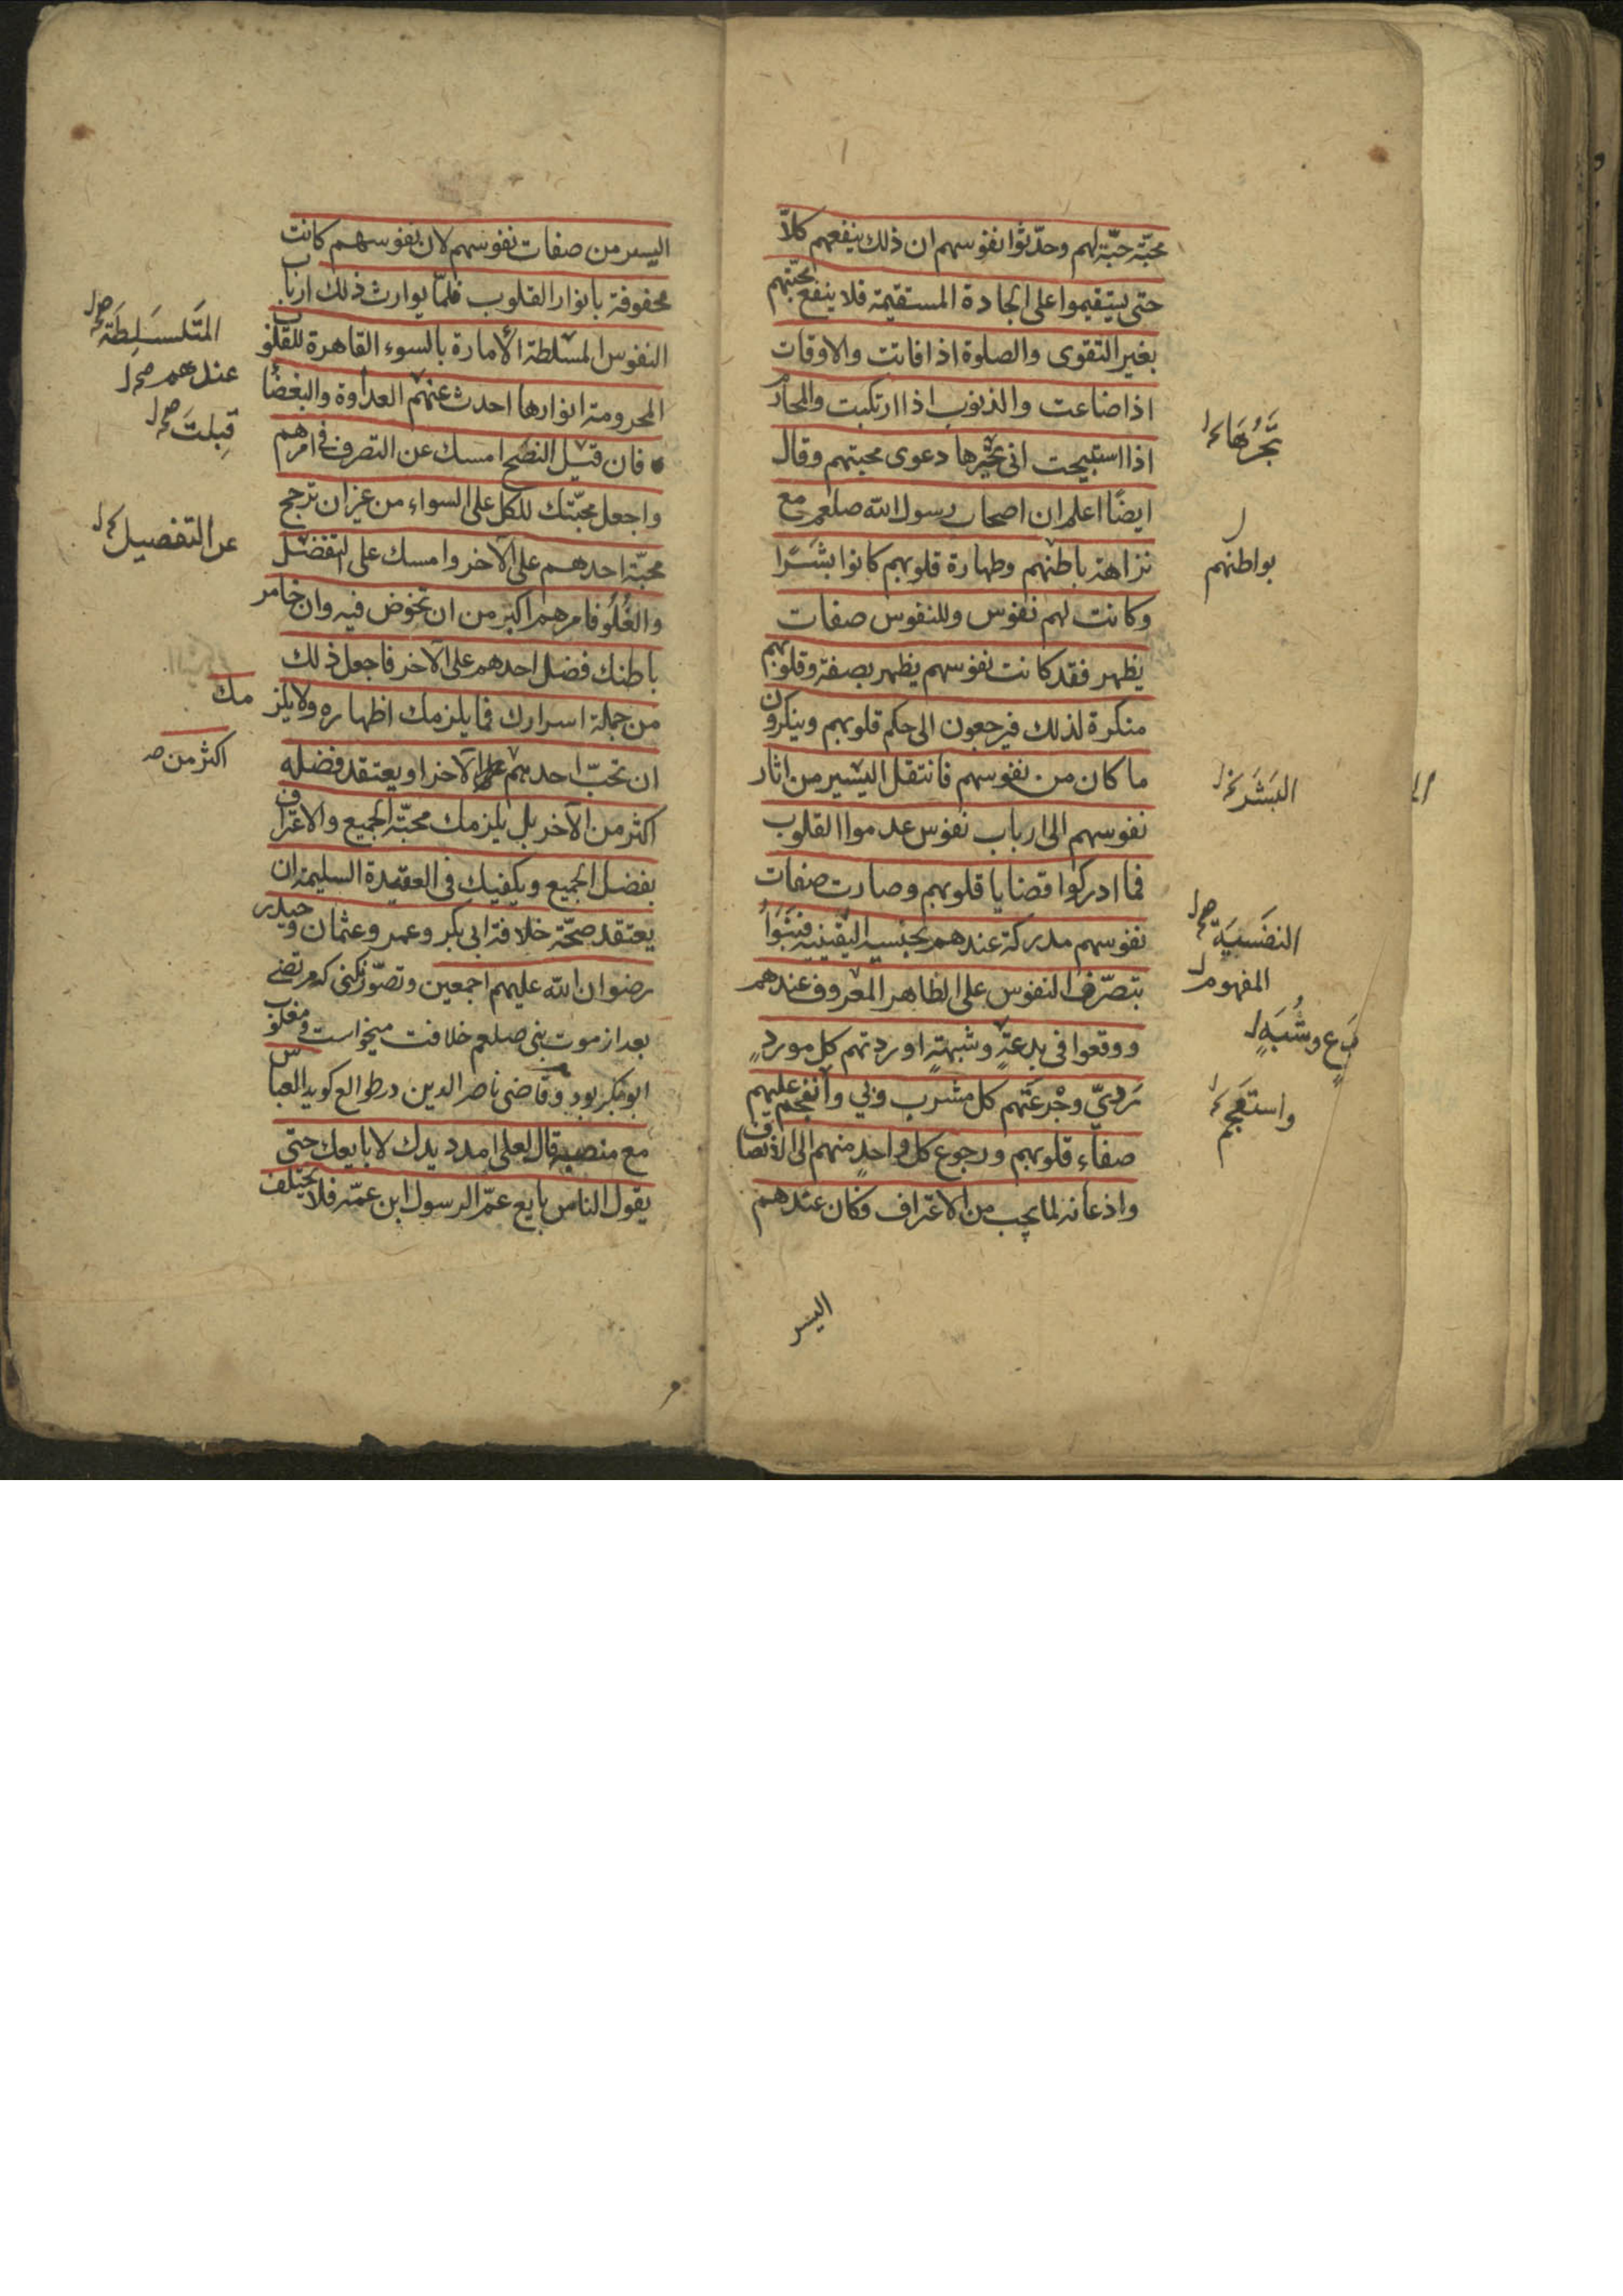 محبّة حبّة لهم وحدّثوا نفوسهم ان ذلك ينفعهم كلاّ
حتى يستقيموا على الجادة المستقيمة فلا ينفع محبّتهم
بغير التقوى والصلوة اذا فاتت والاوقات
اذا ضاعت والذنوب اذا ارتكبت والمحارم
اذا استبيحت انى دعوى محبتهم وقال
ايضًا اعلم ان اصحاب رسول الله صلعم مع
نزاهة باطنهم وطهارة قلوبهم كانوا بشرًا
وكانت لهم نفوس وللنفوس صفات
يظهر فقد كانت نفوسهم يظهر بصفة وقلوبهم
منكرة لذلك فيرجعون الى حكم قلوبهم وينكرون
ما كان من نفوسهم فانتقل اليسير من اثار
نفوسهم الى ارباب نفوس عدموا القلوب
فما ادركوا قضايا قلوبهم وصارت صفات
نفوسهم مدركة عندهم فبنوا
بتصرّف النفوس على الظاهر المعروف عندهم
ووقعوا فى بدعةٍ وشبهةٍ اوردتهم كل موردٍ
رديّ وجرعتهم كل مشرب وبي عليهم
صفاء قلوبهم ورجوع كل واحدٍ منهم الى الانصاف
واذعانه لما يجب من الاعتراف وكان عندهم
اليسر
بواطنهم
البشر
النفسية
المفهوم
بدع وشبهٍ
واستعجم
اليسر من صفات نفوسهم لان نفوسهم كانت
محفوفة بانوار القلوب فلمّا توارث ذلك ارباب
النفوس المسلطة الأمارة بالسوء القاهرة للقلوب
المحرومة انوارها احدث عنهم العداوة والبغضاء
فان قبل النصح امسك عن التصرف فى امرهم
واجعل محبّتك للكل على السواء من غير ان ترجح
محبّة احدهم على الآخر وامسك على التفضيل
والغلو فامرهم اكبر من ان تخوض فيه وان خامر
باطنك فضل احدهم على الآخر فاجعل ذلك
من جملة اسرارك فما يلزمك اظهاره ولا يلزمك
ان تحبّ احدهم على الآخر او يعتقد فضله
اكثر من الآخر بل يلزمك محبّة الجميع والاعتراف
بفضل الجميع ويكفيك فى العقيدة السليمة ان
يعتقد صحّة خلافة ابى بكر وعمر وعثمان وحيدر
رضوان الله عليهم اجمعين وتصوّر نكنى كه مرتضى
بعد از موت نبى صلعم خلافت ميخواست ومغلوب
ابو بكر بود وقاضى ناصر الدين در طوالع كويد العباس
مع منصبه قال لعلى امدد يدك لابايعك حتى
يقول الناس بايع عمّ الرسول ابن عمّه فلا يختلف
المتسلطة
عندهم
قبلت
عن التفضيل
اكثر من